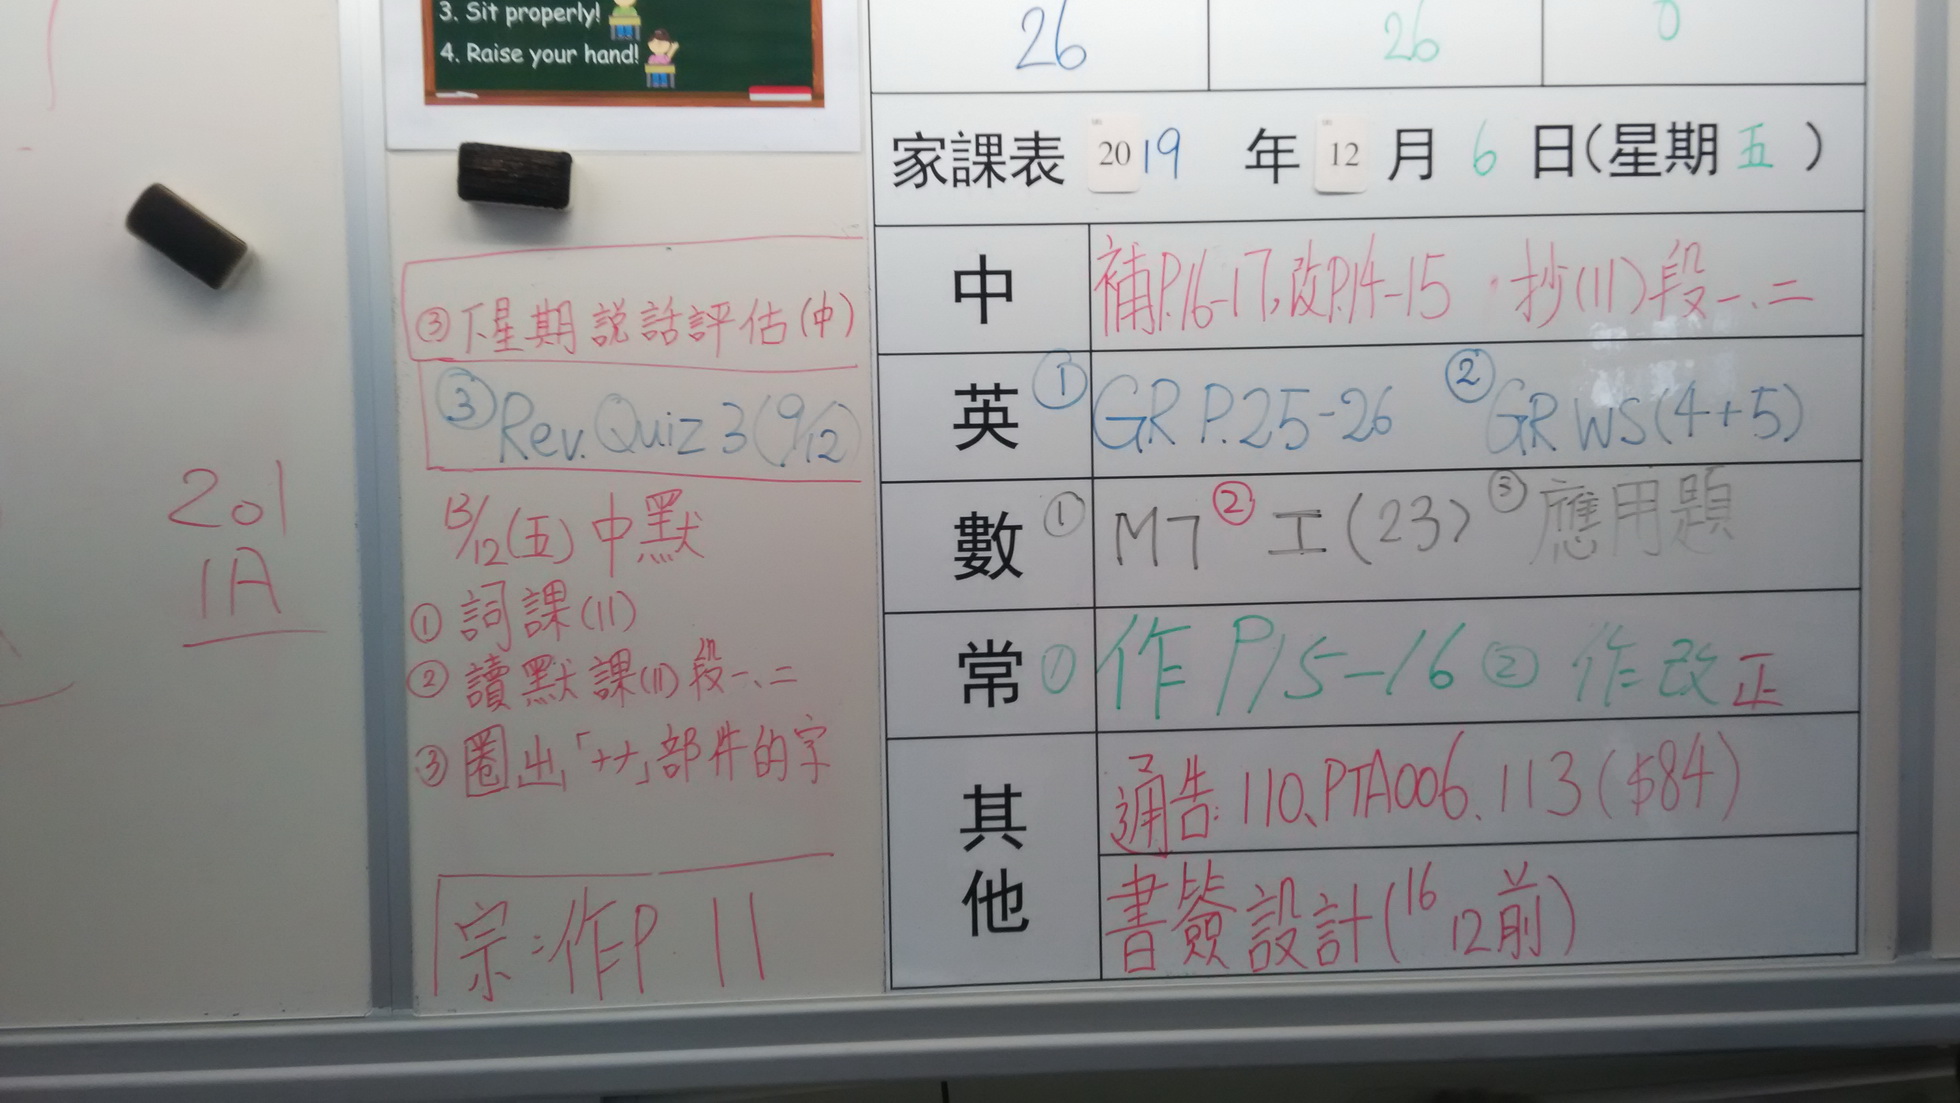 3. Sit properly!
4. Raise your hand!
26 26 0
家課表 2019 年 12 月 6 日(星期五)
中 補P.16-17,改P.14-15 · 抄(11)段一、二
英 ① GR P.25-26 ② GR WS(4+5)
數 ① M7 ② 工(23) ③ 應用題
常 ① 作 P15-16 ② 作改正
其他 通告:110、PTA006、113($84)
書簽設計(16/12前)
③下星期說話評估(中)
③Rev. Quiz 3(9/12)
13/12(五)中默
①詞課(11)
②讀默課(11)段一、二
③圈出「艹」部件的字
宗:作P.11
201
1A